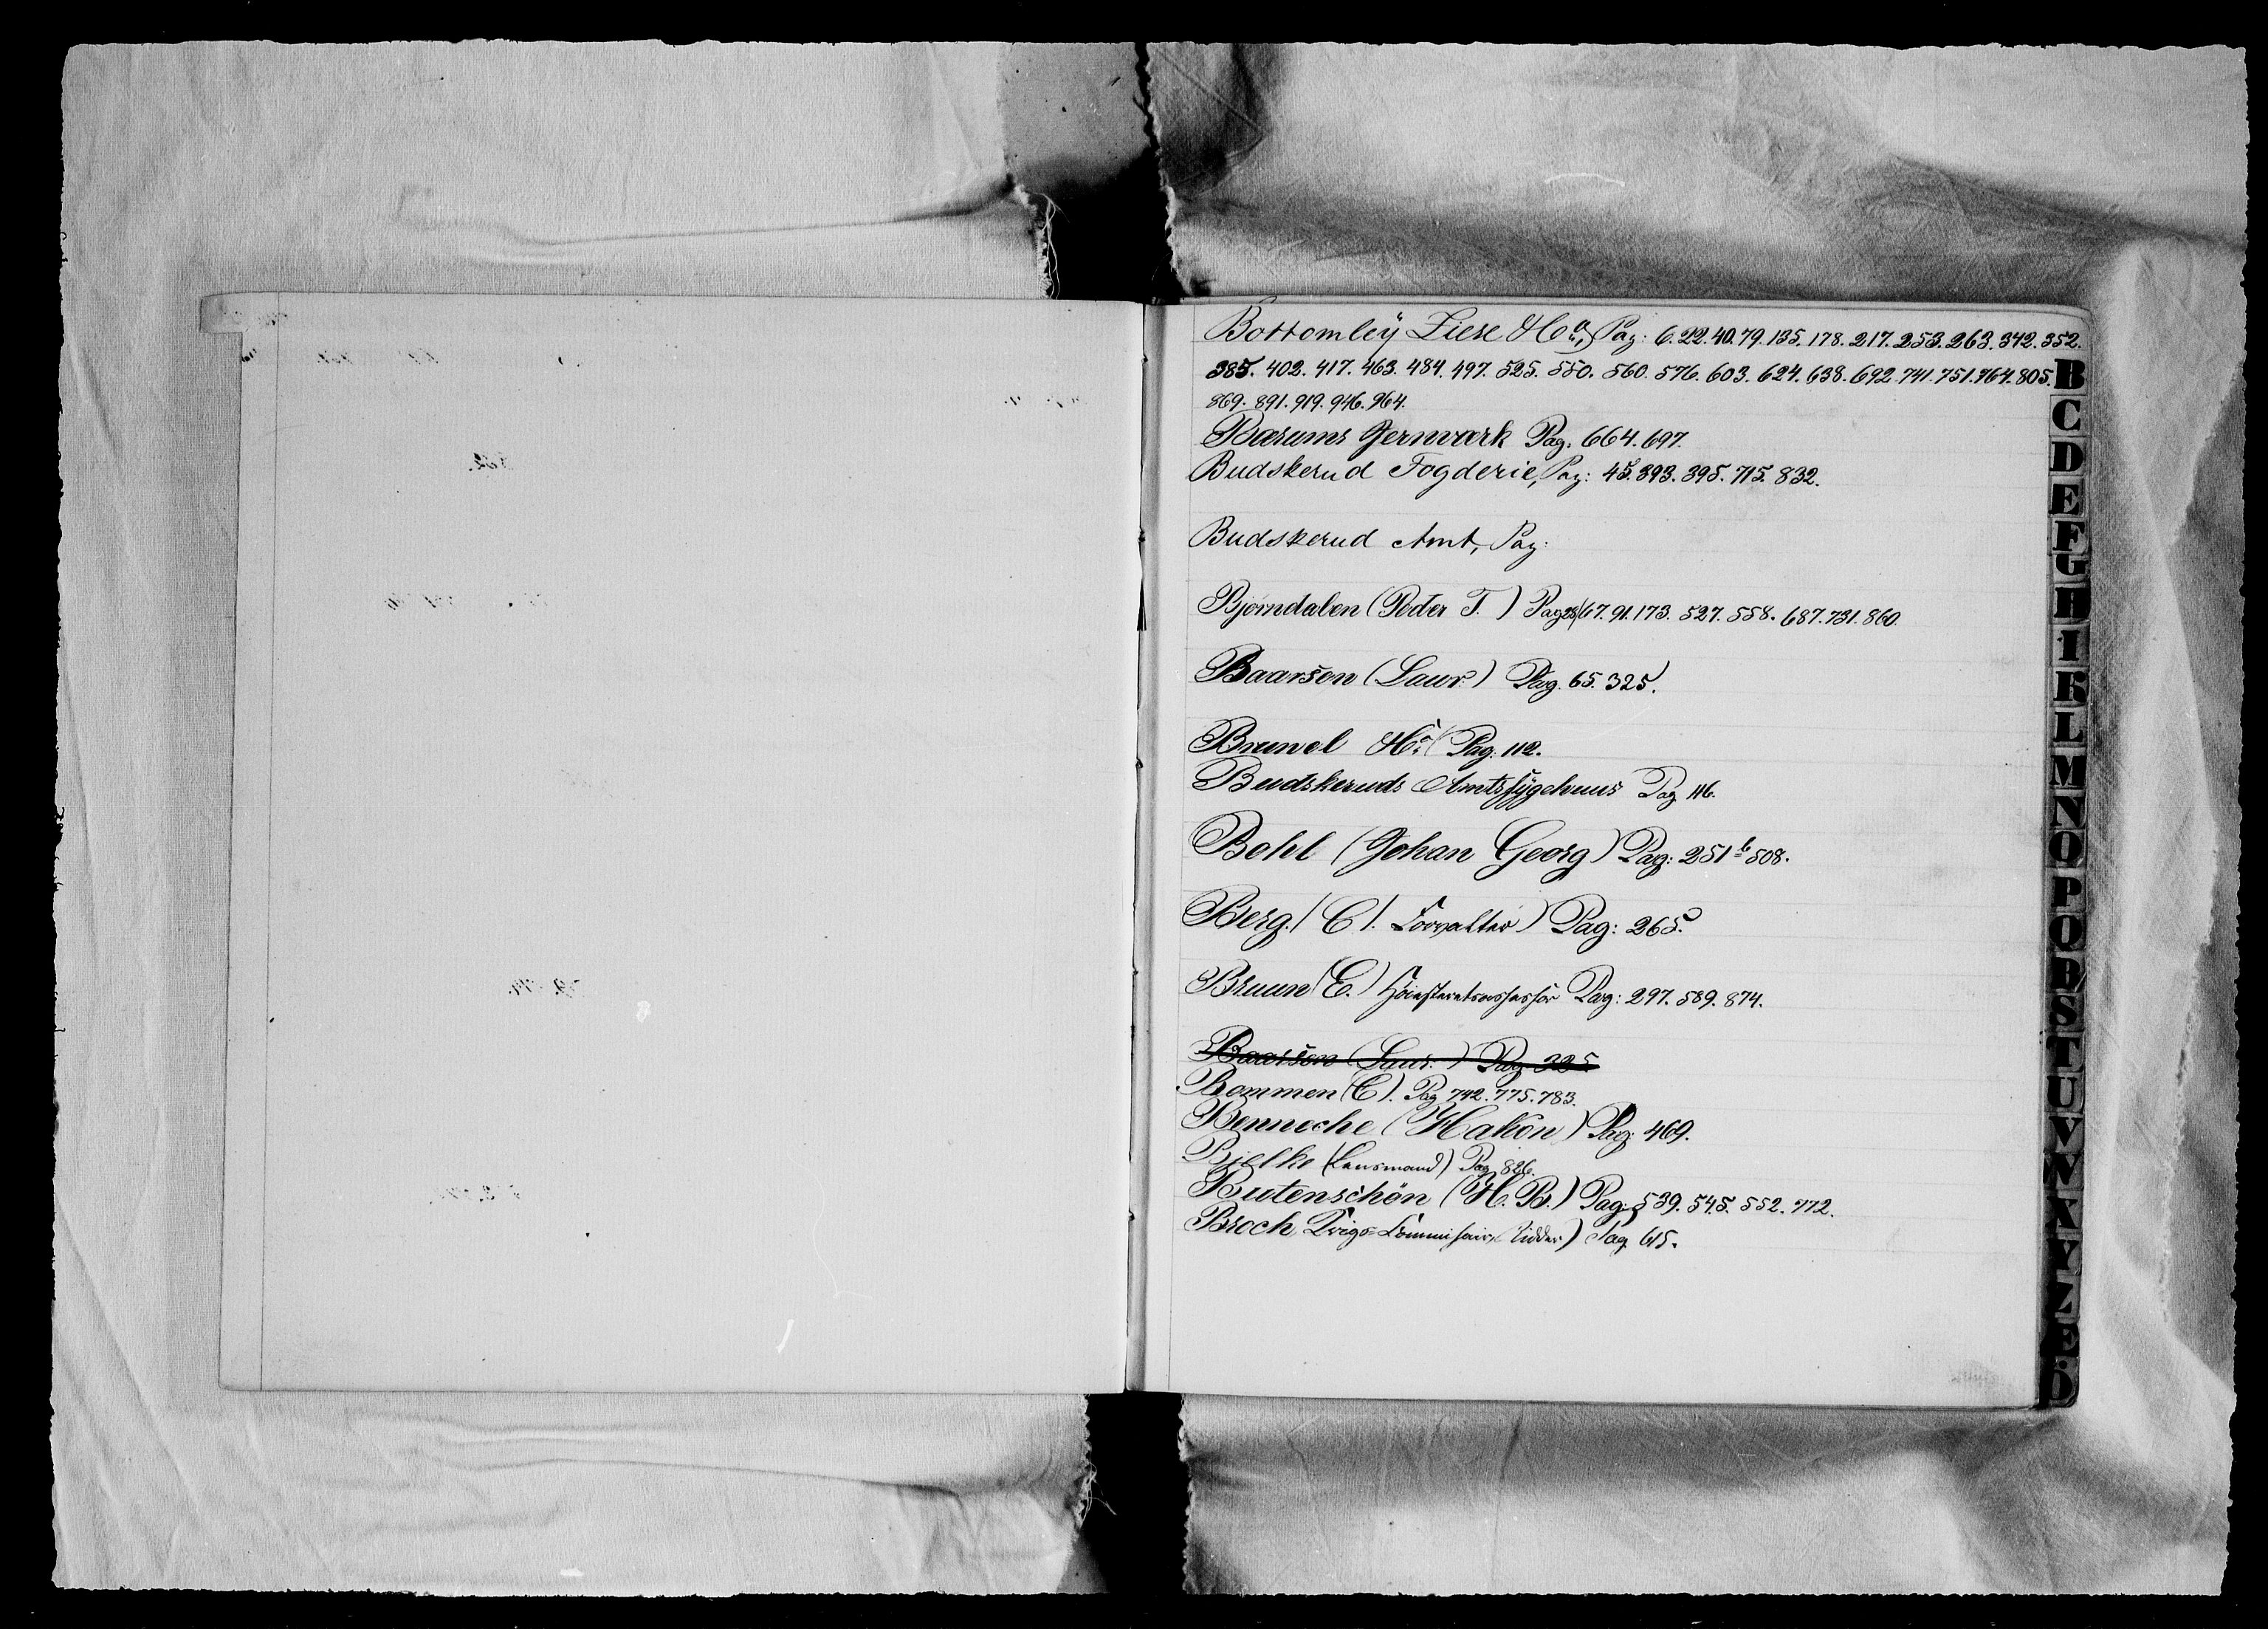 Bottomley Liese & Co, Pag: 6. 22. 40. 79. 135. 178. 217. 253. 263. 342. 352.
385. 402. 417. 463. 484. 497. 525. 550. 560. 576. 603. 624. 638. 692. 741. 751. 764. 805.
869. 891. 919. 946. 964.
Bærums Jernværk Pag. 664. 697.
Budskerud Fogderie, Pag: 45. 393. 395. 715. 832.
Budskerud Amt, Pag:
Bjørndalen (Peder T.) Pag 28/67. 91. 173. 527. 558. 687. 731. 860.
Baarsen (Laur:) Pag. 65. 325.
Pag: 112.
Budskeruds Amtssygehuus Pag 116.
Bohl (Johan Georg) Pag: 251 b 508.
Berg. (C). Forvalter) Pag: 265.
Bruun (C.) Höiesteretsassessor Pag: 297. 589. 874.
Baarsen (Laur:) Pag 325
Bommen (C). Pag 742. 775. 783.
Benneche (Hakon) Pag: 469.
Bielke (Lensmand) Pag 826.
Butenschön (H. B.) Pag: 539. 545. 552. 772.
Broch, Krigs-Commissair, Ridder) Pag 615.
B
C
D
E
F
G
H
I
K
L
M
N
O
P
Q
R
S
T
U
V
W
X
Y
Z
Æ
Ö